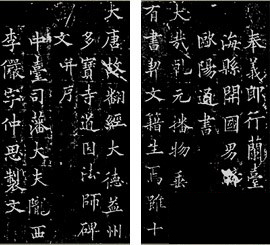 大唐故翻經大德益州
多寶寺道因法師碑
文并序
中臺司藩大夫隴西
李儼字仲思製文
奉義郎行蘭臺
海縣開國男
歐陽通書
大哉乾元播物垂
有書契文籍生焉雖十